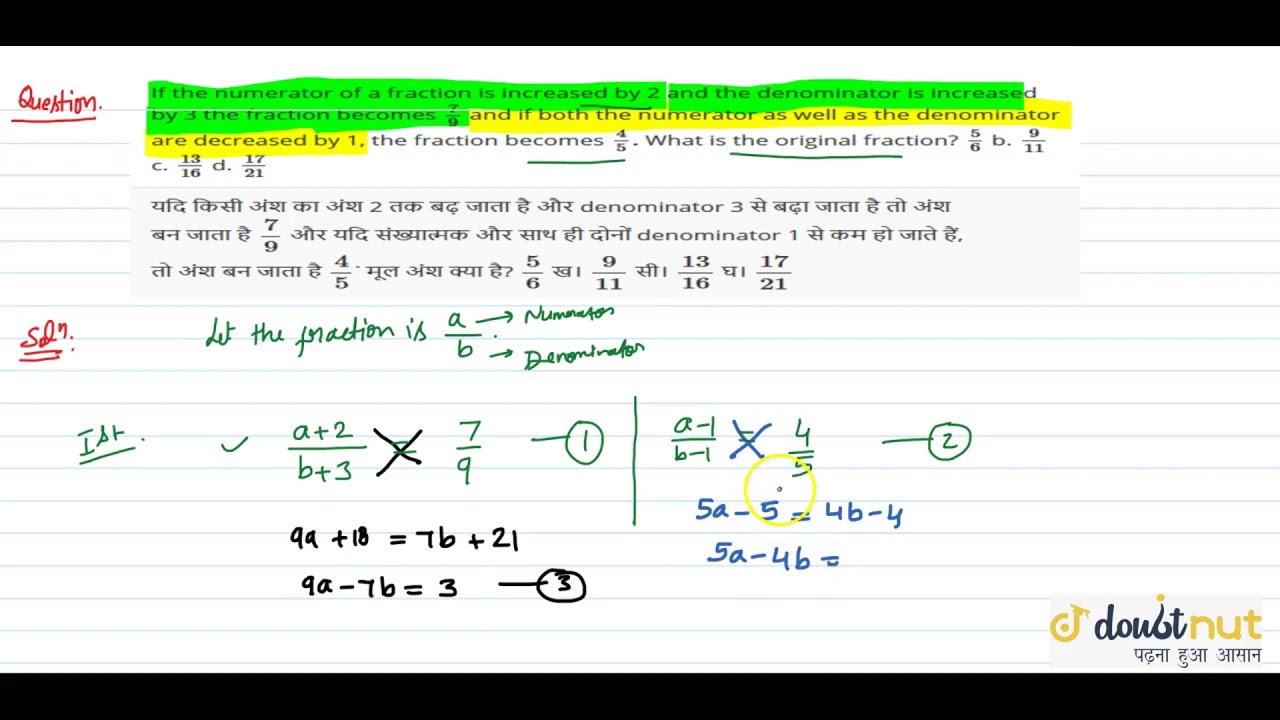 Question.
If the numerator of a fraction is increased by 2 and the denominator is increased
by 3 the fraction becomes 7/9 and if both the numerator as well as the denominator
are decreased by 1, the fraction becomes 4/5. What is the original fraction? 5/6 b. 9/11
c. 13/16 d. 17/21
यदि किसी अंश का अंश 2 तक बढ़ जाता है और denominator 3 से बढ़ा जाता है तो अंश
बन जाता है 7/9 और यदि संख्यात्मक और साथ ही दोनों denominator 1 से कम हो जाते हैं,
तो अंश बन जाता है 4/5. मूल अंश क्या है? 5/6 ख। 9/11 सी। 13/16 घ। 17/21
Soln.
Let the fraction is a/b.
→ Numerator
→ Denominator
Ist.
✓ a+2/b+3 = 7/9 — 1
a-1/b-1 = 4/5 — 2
9a + 18 = 7b + 21
9a - 7b = 3 — 3
5a - 5 = 4b - 4
5a - 4b =
doubtnut
पढ़ना हुआ आसान